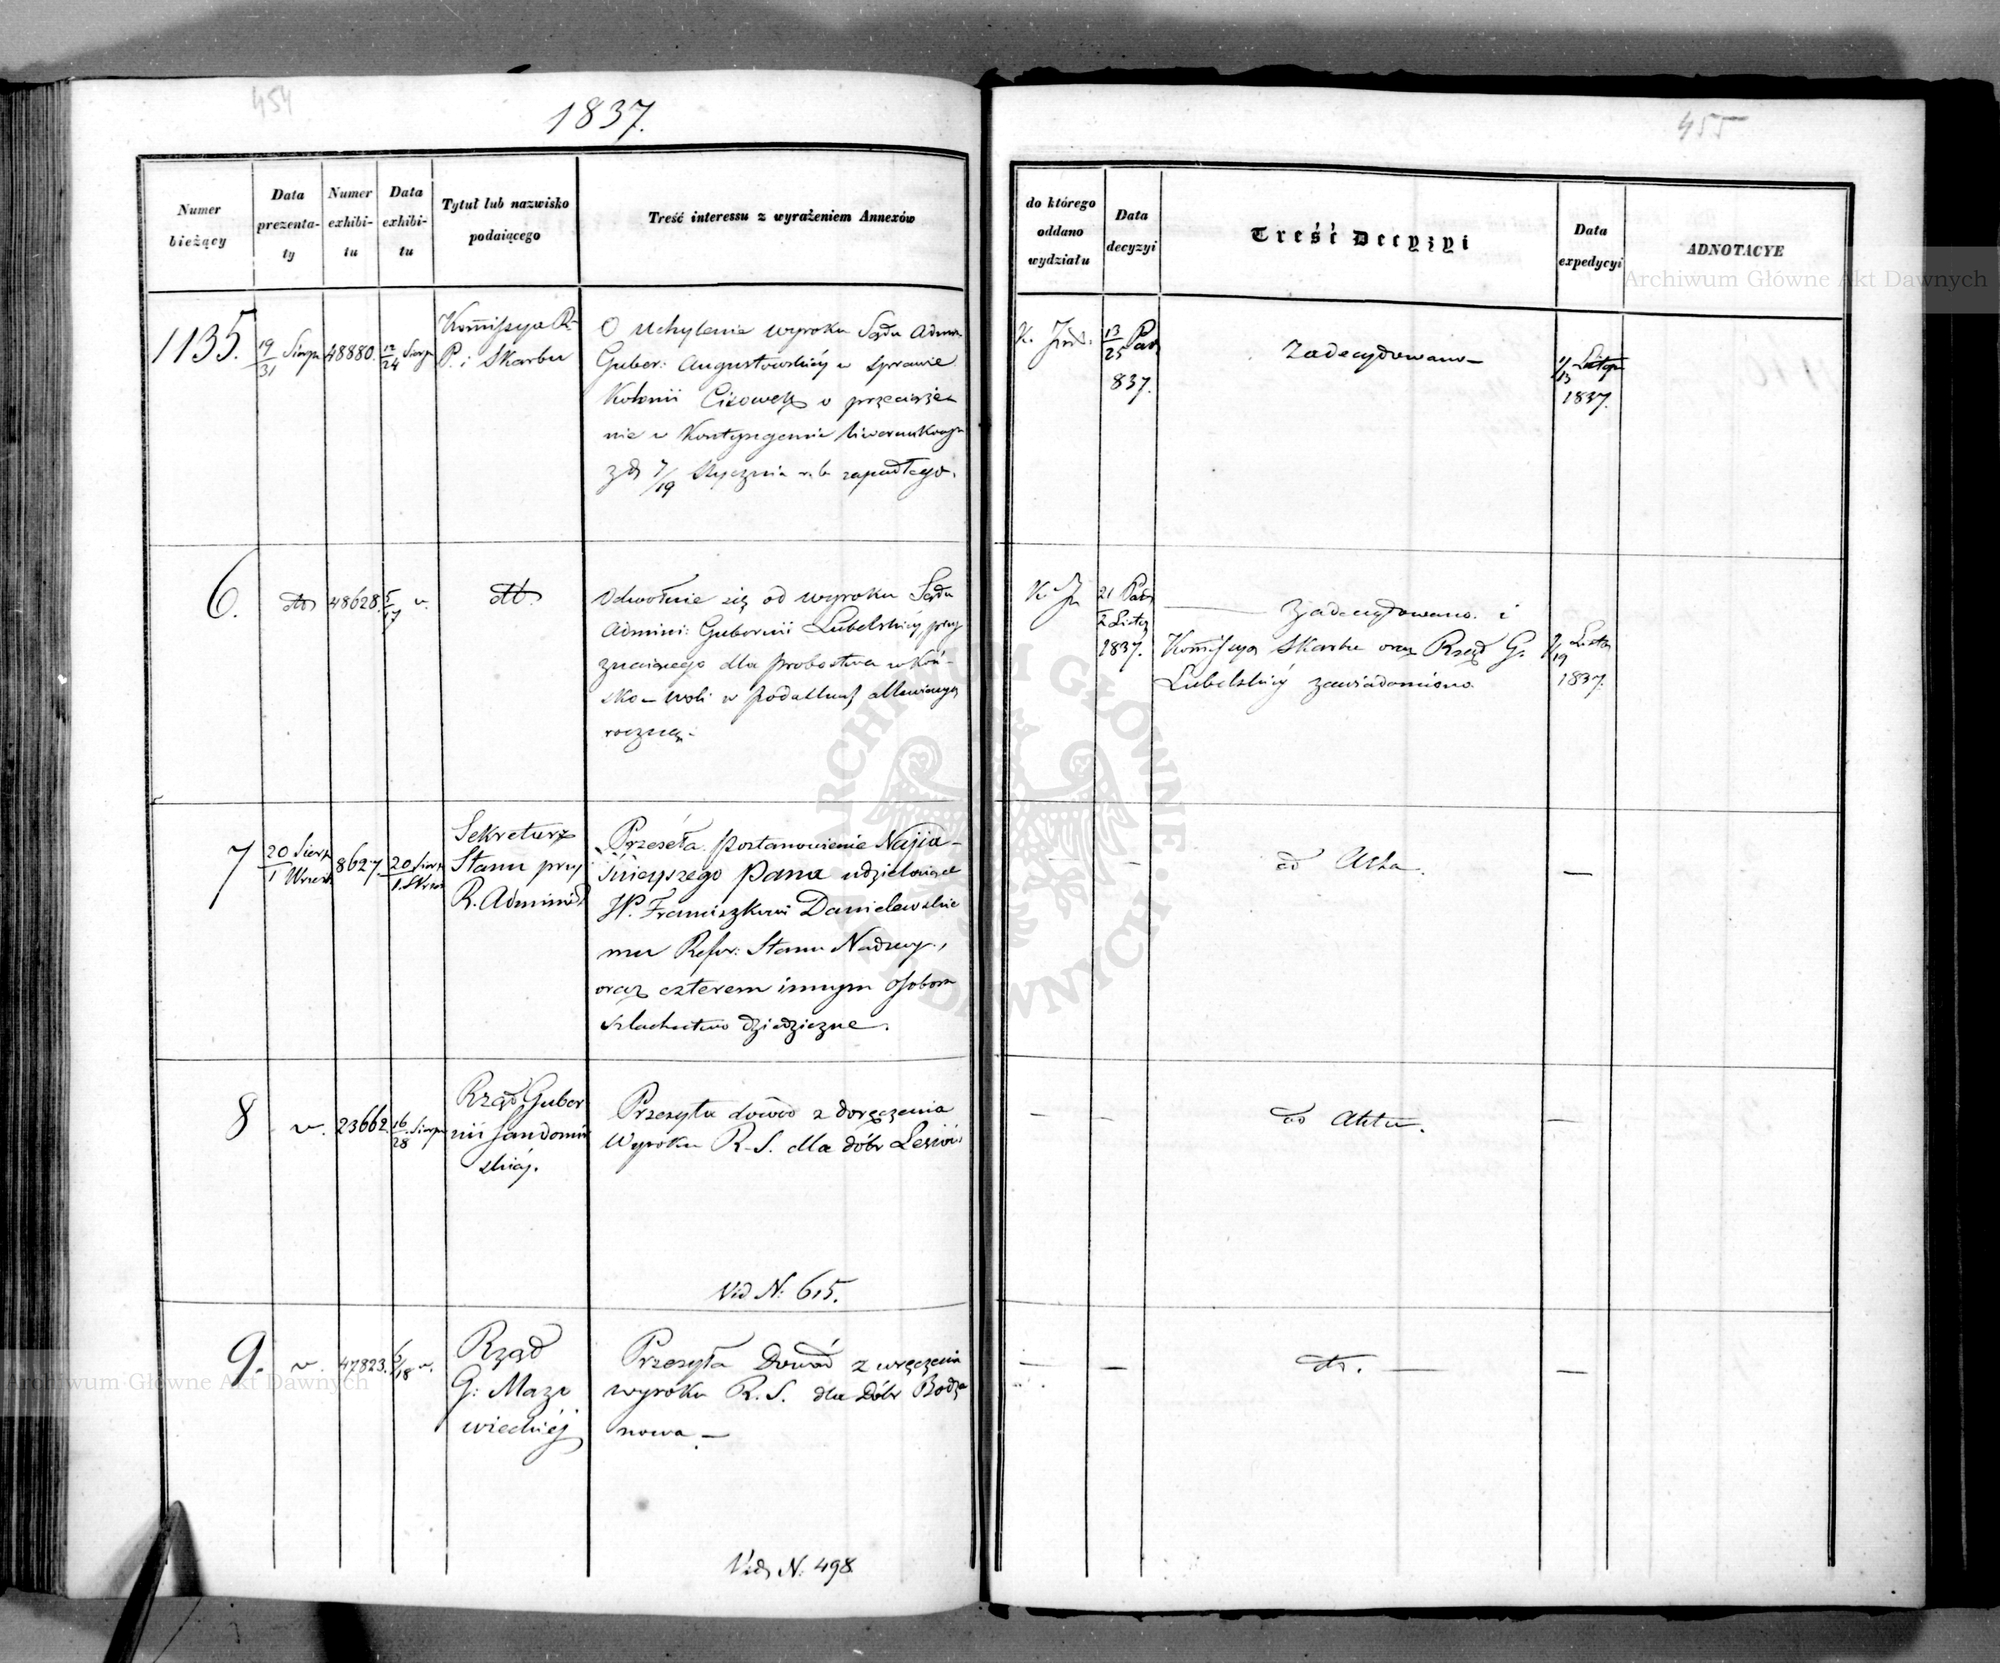 454
1837.
455
Numer bieżący
Data prezentaty
Numer exhibitu
Data exhibitu
Tytuł lub nazwisko podaiącego
Treść interessu z wyrażeniem Annexów
do którego oddano wydziału
Data decyzyi
Treść Decyzyi
Data expedycyi
ADNOTACYE
1135.
19/31 Sierp
48880.
12/24 Sierp
Kommissya R.
P. i Skarbu
O Uchylenie wyroku Sądu Admin
Guber: Augustowskiéy w sprawie
Kolonii o przeciąże
nie w Kontyngensie liwerunkowym
z d. 7/19 Stycznia r. b. zapadłego.
13/25 Paź
837.
Zadecydowano
1/13 Listop
1837.
6.
dto
48628.
5/17
dto.
Odwołanie się od wyroku Sądu
Admini: Gubernii Lubelskiéy, przy
znaiącego dla probostwa w Koń-
sko-woli w podatku
roczną.
21 Paź
2 Listop
1837.
Zadecydowano i
Kommissya Skarbu oraz Rząd G.
Lubelskiéy zawiadomiono.
7/19 Listo
1837.
7
20 Sierp
1 Wrześ
8627.
20 Sierp
1 Wrześ
Sekretarz
Stanu przy
R. Administ
Przeséła postanowienie Najia-
śnieyszego Pana udzielaiące
JP. Franciszkowi Danielewskie
mu Refer: Stanu Nadzwy.,
oraz czterem innym osobom
szlachectwo dziedziczne.
ad Acta.
8
23662
16/28 Sierp
Rząd Guber
nii Sandomir
skiéj.
Przesyła dowód z doręczenia
Wyroku R. S. dla dóbr
Vid N: 615.
ad Acta.
9.
47823.
6/18
Rząd
G: Mazo
wieckiéj
Przesyła Dowód z wręczenia
wyroku R. S. dla Dóbr Bodza
nowa
Vid. N. 498
dto.
Archiwum Główne Akt Dawnych
Archiwum Główne Akt Dawnych
ARCHIWUM GŁÓWNE AKT DAWNYCH